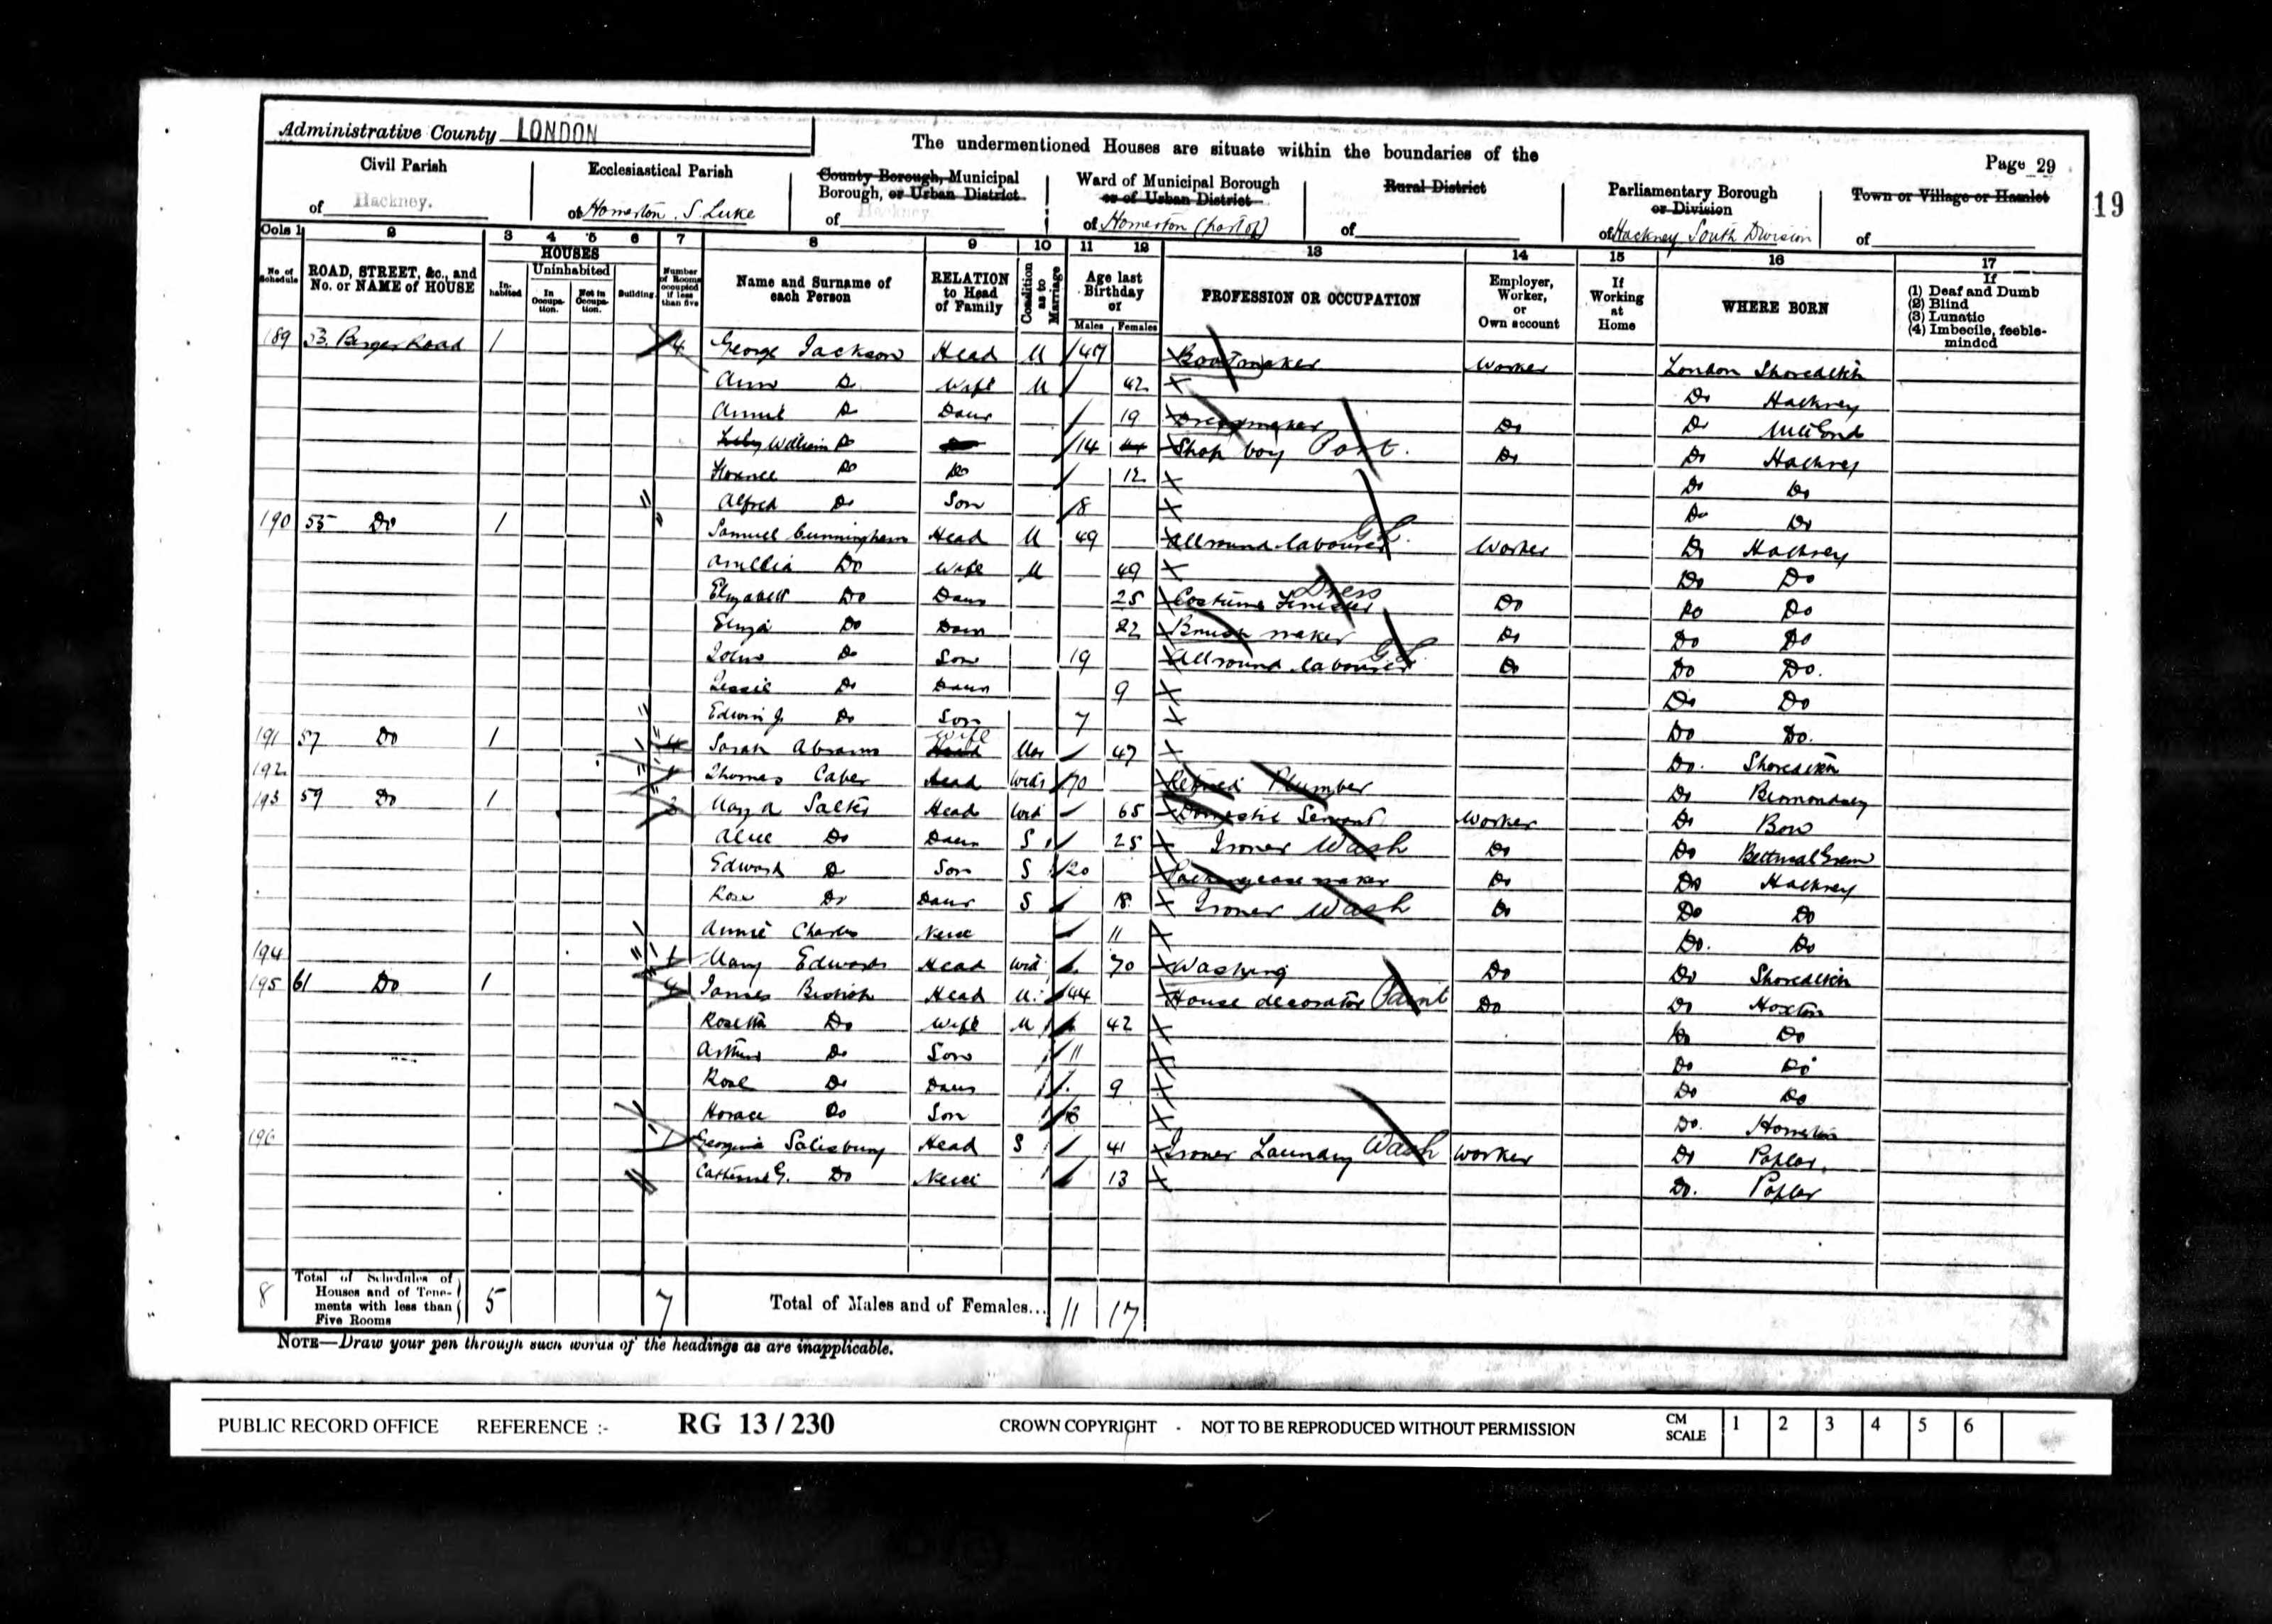 Administrative County LONDON
The undermentioned Houses are situate within the boundaries of the
Page 29
19
Civil Parish
of Hackney.
Ecclesiastical Parish
of Homerton. S. Luke
County Borough, Municipal
Borough, or Urban District
of Hackney
Ward of Municipal Borough
or of Urban District
of Homerton (part of)
Rural District
of
Parliamentary Borough
or Division
of Hackney South Division
Town or Village or Hamlet
of
Cols 1 2 3 4 5 6 7 8 9 10 11 12 13 14 15 16 17
No. of Schedule
ROAD, STREET, &c., and No. or NAME of HOUSE
HOUSES
In-habited
Uninhabited
In Occupa-tion.
Not in Occupa-tion.
Building.
Number of Rooms occupied if less than five
Name and Surname of each Person
RELATION to Head of Family
Condition as to Marriage
Age last Birthday or
Males Females
PROFESSION OR OCCUPATION
Employer, Worker, or Own account
If Working at Home
WHERE BORN
If
(1) Deaf and Dumb
(2) Blind
(3) Lunatic
(4) Imbecile, feeble-minded
189 53. Berger Road 1 4 George Jackson Head M 47 Bootmaker Worker London Shoreditch
Ann Do Wife M 42 Do Hackney
Annie Do Daur 19 Dressmaker Do Do Mile End
William Do 14 Shop boy Port. Do Do Hackney
Florence Do Do 12 Do Do
Alfred Do Son 8 Do Do
190 55 Do 1 Samuel Cunningham Head M 49 Allround labourer G.L. Worker Do Hackney
Amellia Do Wife M 49 Do Do
Elizabeth Do Daur 25 Costume Finisher Dress Do Do Do
Eliza Do Daur 22 Brush maker Do Do Do
John Do Son 19 Allround labourer G.L. Do Do Do.
Jessie Do Daur 9 Do Do
Edwin J. Do Son 7 Do Do.
191 57 Do 1 4 Sarah Abrams Head Wife Mar 47 Do. Shoreditch
192 1 Thomas Caber Head Widr 70 Retired Plumber Do Bermondsey
193 59 Do 1 3 Mary A Salter Head Wid 65 Domestic Servant Worker Do Bow
Alice Do Daur S 25 Ironer Wash Do Do Bethnal Green
Edward Do Son S 20 Packing case maker Do Do Hackney
Rose Do Daur S 18 Ironer Wash Do Do Do
Annie Charles Neice 11 Do. Do
194 1 Mary Edwards Head Wid 70 Washing Do Do Shoreditch
195 61 Do 1 4 James Head M. 44 House decorator Paint Do Do Hoxton
Rosetta Do Wife M 42 Do Do
Arthur Do Son 11 Do Do
Rose Do Daur 9 Do Do
Horace Do Son Do. Homerton
196 1 Georgina Salisbury Head S 41 Ironer Laundry Wash Worker Do Poplar.
Catherine G. Do Neice 13 Do. Poplar
8 Total of Schedules of Houses and of Tene-ments with less than Five Rooms 5 7 Total of Males and of Females... 11 17
NOTE—Draw your pen through such words of the headings as are inapplicable.
PUBLIC RECORD OFFICE REFERENCE :- RG 13 / 230 CROWN COPYRIGHT - NOT TO BE REPRODUCED WITHOUT PERMISSION CM SCALE 1 2 3 4 5 6